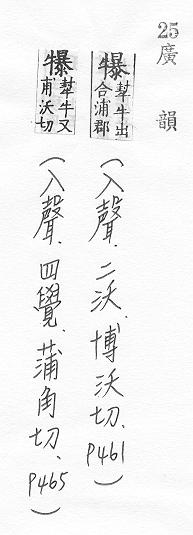 25廣韻
犦犎牛出合浦郡（入聲、二沃、博沃切、P461）
犦犎牛又甫沃切（入聲、四覺、蒲角切、P465）